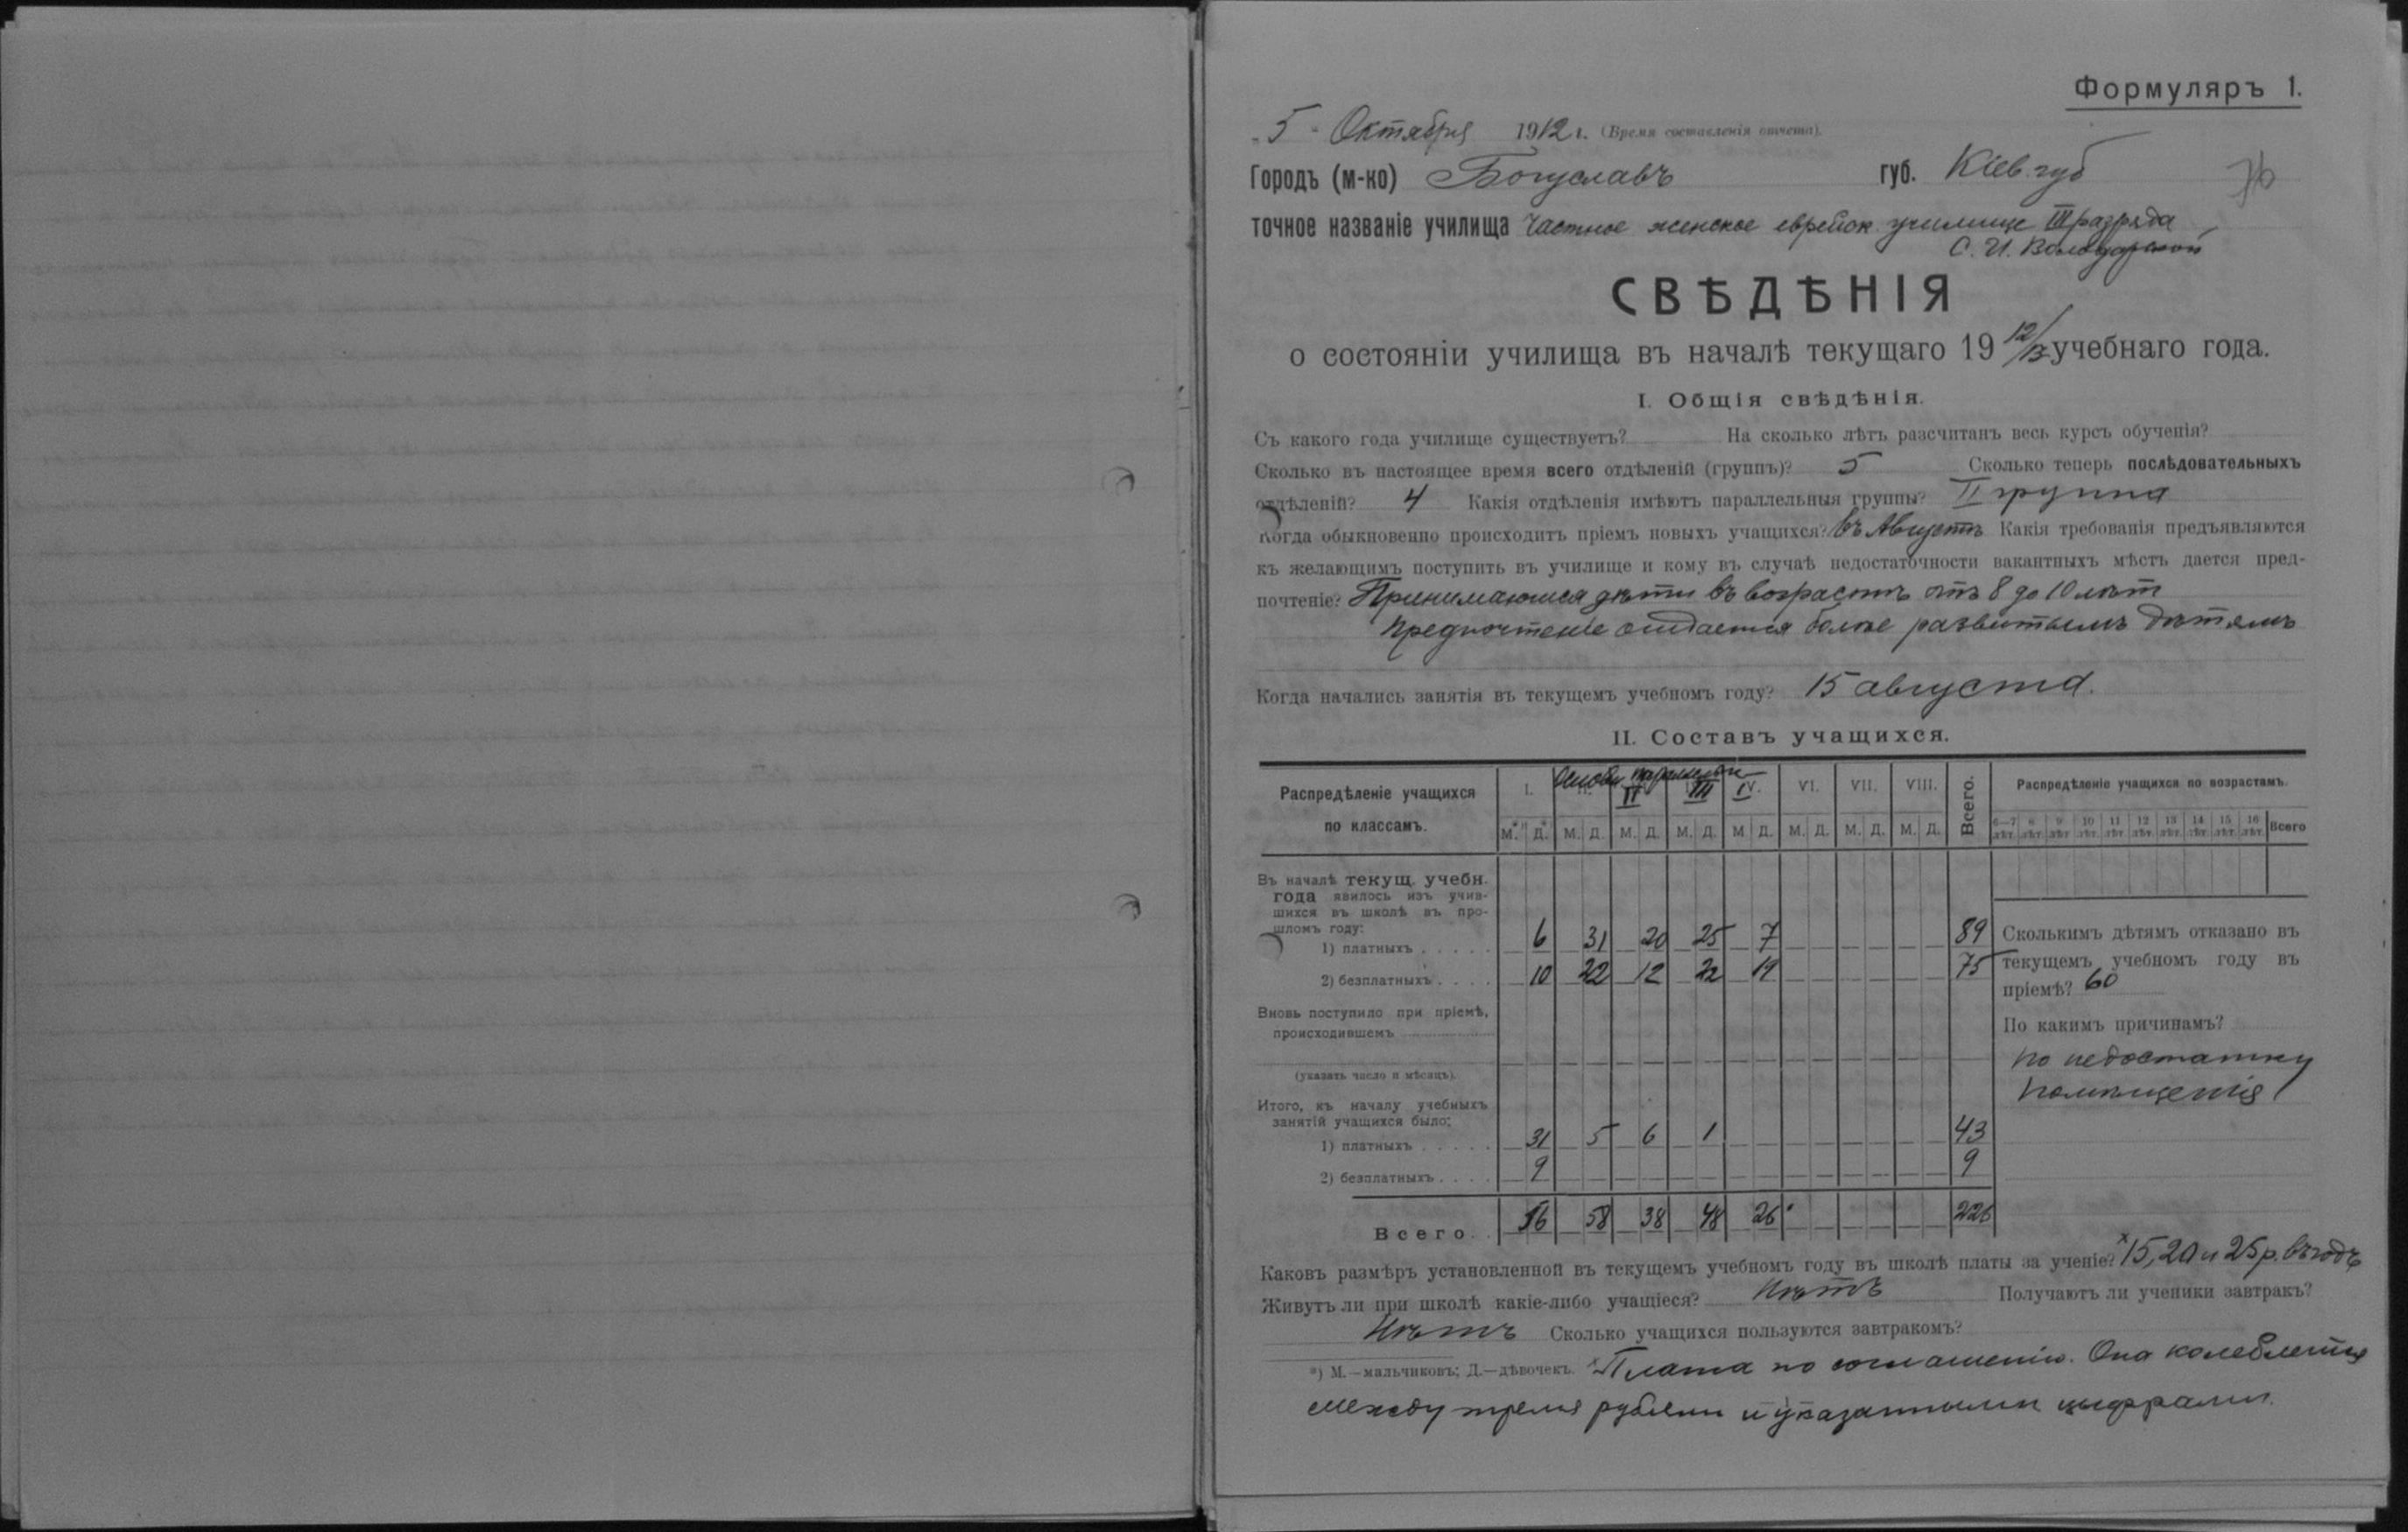 Формуляръ 1.
„5“ Октября 1912 г. (Время составленія отчета).
Городъ (м-ко) Богуславъ губ. Кіев. губ
точное названіе училища Частное женское еврейск училище III разряда
С. И. Володарской
СВѢДѢНІЯ
о состояніи училища въ началѣ текущаго 19 12/13 учебнаго года.
I. Общія свѣдѣнія.
Съ какого года училище существуетъ? На сколько лѣтъ разсчитанъ весь курсъ обученія?
Сколько въ настоящее время всего отдѣленій (группъ)? 5 Сколько теперь послѣдовательныхъ
отдѣленій? 4 Какія отдѣленія имѣютъ параллельныя группы? II группа
Когда обыкновенно происходитъ пріемъ новыхъ учащихся? Въ Августѣ Какія требованія предъявляются
къ желающимъ поступить въ училище и кому въ случаѣ недостаточности вакантныхъ мѣстъ дается пред-
почтеніе? Принимаются дѣти въ возрастѣ отъ 8 до 10 лѣт
Предпочтеніе отдается болѣе развитымъ дѣтямъ
Когда начались занятія въ текущемъ учебномъ году? 15 августа.
II. Составъ учащихся.
Распредѣленіе учащихся по классамъ. I. Основн II. параллельн II III IV. VI. VII. VIII. Всего. Распредѣленіе учащихся по возрастамъ.
М.*) Д.*) М. Д. М. Д. М. Д. М Д. М. Д. М. Д. М. Д. 6—7 лѣт. 8 лѣт. 9 лѣт. 10 лѣт. 11 лѣт. 12 лѣт. 13 лѣт. 14 лѣт. 15 лѣт. 16 лѣт. Всего
Въ началѣ текущ. учебн.
года явилось изъ учив-
шихся въ школѣ въ про-
шломъ году:
1) платныхъ . . . . . 6 31 20 25 7 89
2) безплатныхъ . . . . 10 22 12 22 19 75
Вновь поступило при пріемѣ,
происходившемъ
(указать число и мѣсяцъ).
Итого, къ началу учебныхъ
занятій учащихся было:
1) платныхъ . . . . . 31 5 6 1 43
2) безплатныхъ . . . . 9 9
Всего . . 56 58 38 48 26 226
Сколькимъ дѣтямъ отказано въ
текущемъ учебномъ году въ
пріемѣ? 60
По какимъ причинамъ?
по недостатку
помѣщенія
Каковъ размѣръ установленной въ текущемъ учебномъ году въ школѣ платы за ученіе? х 15, 20 и 25 р. въ годъ
Живутъ ли при школѣ какіе-либо учащіеся? Нѣтъ Получаютъ ли ученики завтракъ?
Нѣтъ Сколько учащихся пользуются завтракомъ?
*) М.—мальчиковъ; Д.—дѣвочекъ. х Плата по соглашенію. Она колеблется
между тремя рублями и указанными цыфрами.